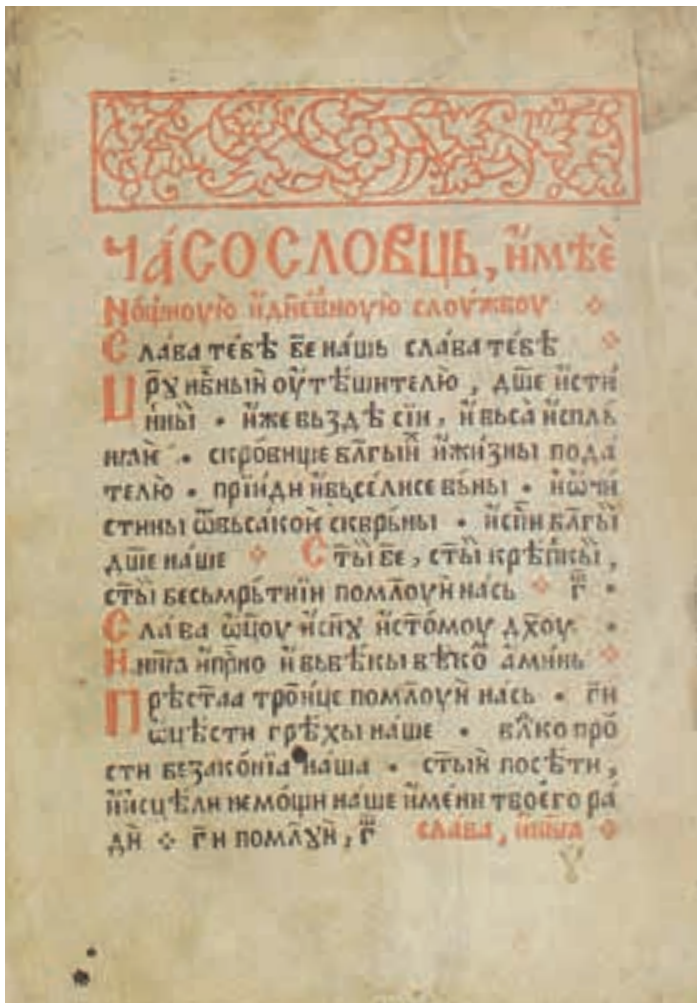 ЧА́СОСЛОВЦЬ, и҆мѣе҆
Но́щноую̀ и҆дн҃е́вноую̀ слоу́жбоу
Сла́ва те́бѣ бе҃ на́шь сла́ва те́бѣ
Цр҃ꙋ нб҃ныи оу҆тѣшителю̀, дш҃е и҆сти́
и́нны̏и • и҆́же вьздѣ сїи, и҆ вьса̀ и҆спль
ꙗ҆и҆ • скро́внще бл҃гы́и и҆жи́зны пода́
телю̀ • прїи́ди и҆вьсе́лисе вьны • и҆ѡ҆чи́
стины ѿвьса́кои скврьны • и҆сп҃и бл҃гы̏и
дш҃е на́ше Ст҃ы̏и бе҃, ст҃ы̏и крѣпкы̏и,
ст҃ы̏и бесьмрь́тнїи пом҃лоуи на́сь г҃ •
Сла́ва ѿцоу и҆сн҃ꙋ и҆ст҃о́моу дх҃оу •
И нн҃ꙗ и҆пр҃но и҆ вьвѣ́кы вѣко҃ а҆ми́нь
Прѣст҃аа тро́ице пом҃лоуи на́сь • г҃и
ѡцѣсти грѣ́хы на́ше • вл҃ко про́
сти безако́нїа на́ша • ст҃ы́и посѣ́ти,
и҆и҆сцѣли немо́щи на́ше и҆́мени твое́го ра́
ди̏ г҃и пом҃лꙋи, г҃ сла́ва, и҆нн҃ꙗ